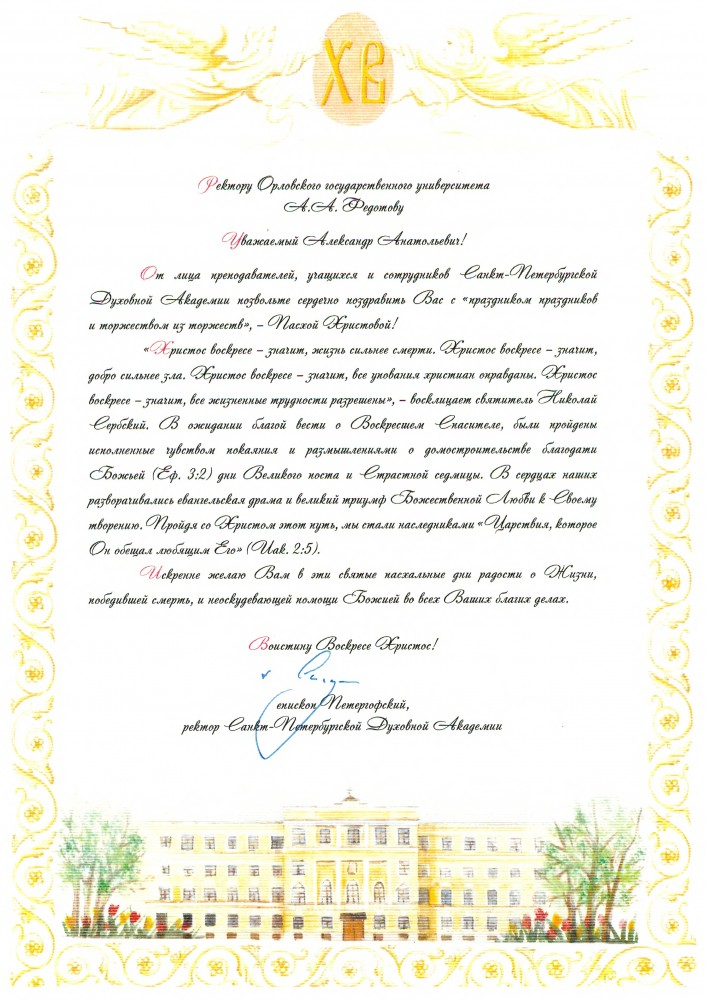 ХВ
Ректору Орловского государственного университета
А.А. Федотову
Уважаемый Александр Анатольевич!
От лица преподавателей, учащихся и сотрудников Санкт-Петербургской
Духовной Академии позвольте сердечно поздравить Вас с «праздником праздников
и торжеством из торжеств», – Пасхой Христовой!
«Христос воскресе – значит, жизнь сильнее смерти. Христос воскресе – значит,
добро сильнее зла. Христос воскресе – значит, все упования христиан оправданы. Христос
воскресе – значит, все жизненные трудности разрешены», – восклицает святитель Николай
Сербский. В ожидании благой вести о Воскресшем Спасителе, были пройдены
исполненные чувством покаяния и размышлениями о домостроительстве благодати
Божьей (Еф. 3:2) дни Великого поста и Страстной седмицы. В сердцах наших
разворачивались евангельская драма и великий триумф Божественной Любви к Своему
творению. Пройдя со Христом этот путь, мы стали наследниками «Царствия, которое
Он обещал любящим Его» (Иак. 2:5).
Искренне желаю Вам в эти святые пасхальные дни радости о Жизни,
победившей смерть, и неоскудевающей помощи Божией во всех Ваших благих делах.
Воистину Воскресе Христос!
епископ Петергофский,
ректор Санкт-Петербургской Духовной Академии